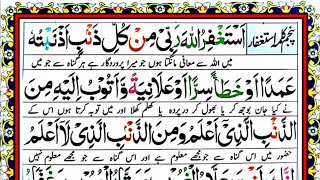 پنجم کلمہ استغفار
اَسْتَغْفِرُ اللهَ رَبِّیْ مِنْ كُلِّ ذَنْۢبٍ اَذْنَبْتُهٗ
میں اللہ سے معافی مانگتا ہوں جو میرا پروردگار ہے ہر گناہ سے جو میں
عَمَدًا اَوْ خَطَأً سِرًّا اَوْ عَلَانِيَةً وَّاَتُوْبُ اِلَيْهِ مِنَ
نے کیا جان بوجھ کر یا بھول کر درپردہ یا کھلم کھلا اور میں توبہ کرتا ہوں اس کے
الذَّنْۢبِ الَّذِیْٓ اَعْلَمُ وَمِنَ الذَّنْۢبِ الَّذِیْ لَآ اَعْلَمُ
حضور میں اس گناہ سے جو مجھے معلوم ہے اور اس گناہ سے جو مجھے معلوم نہیں